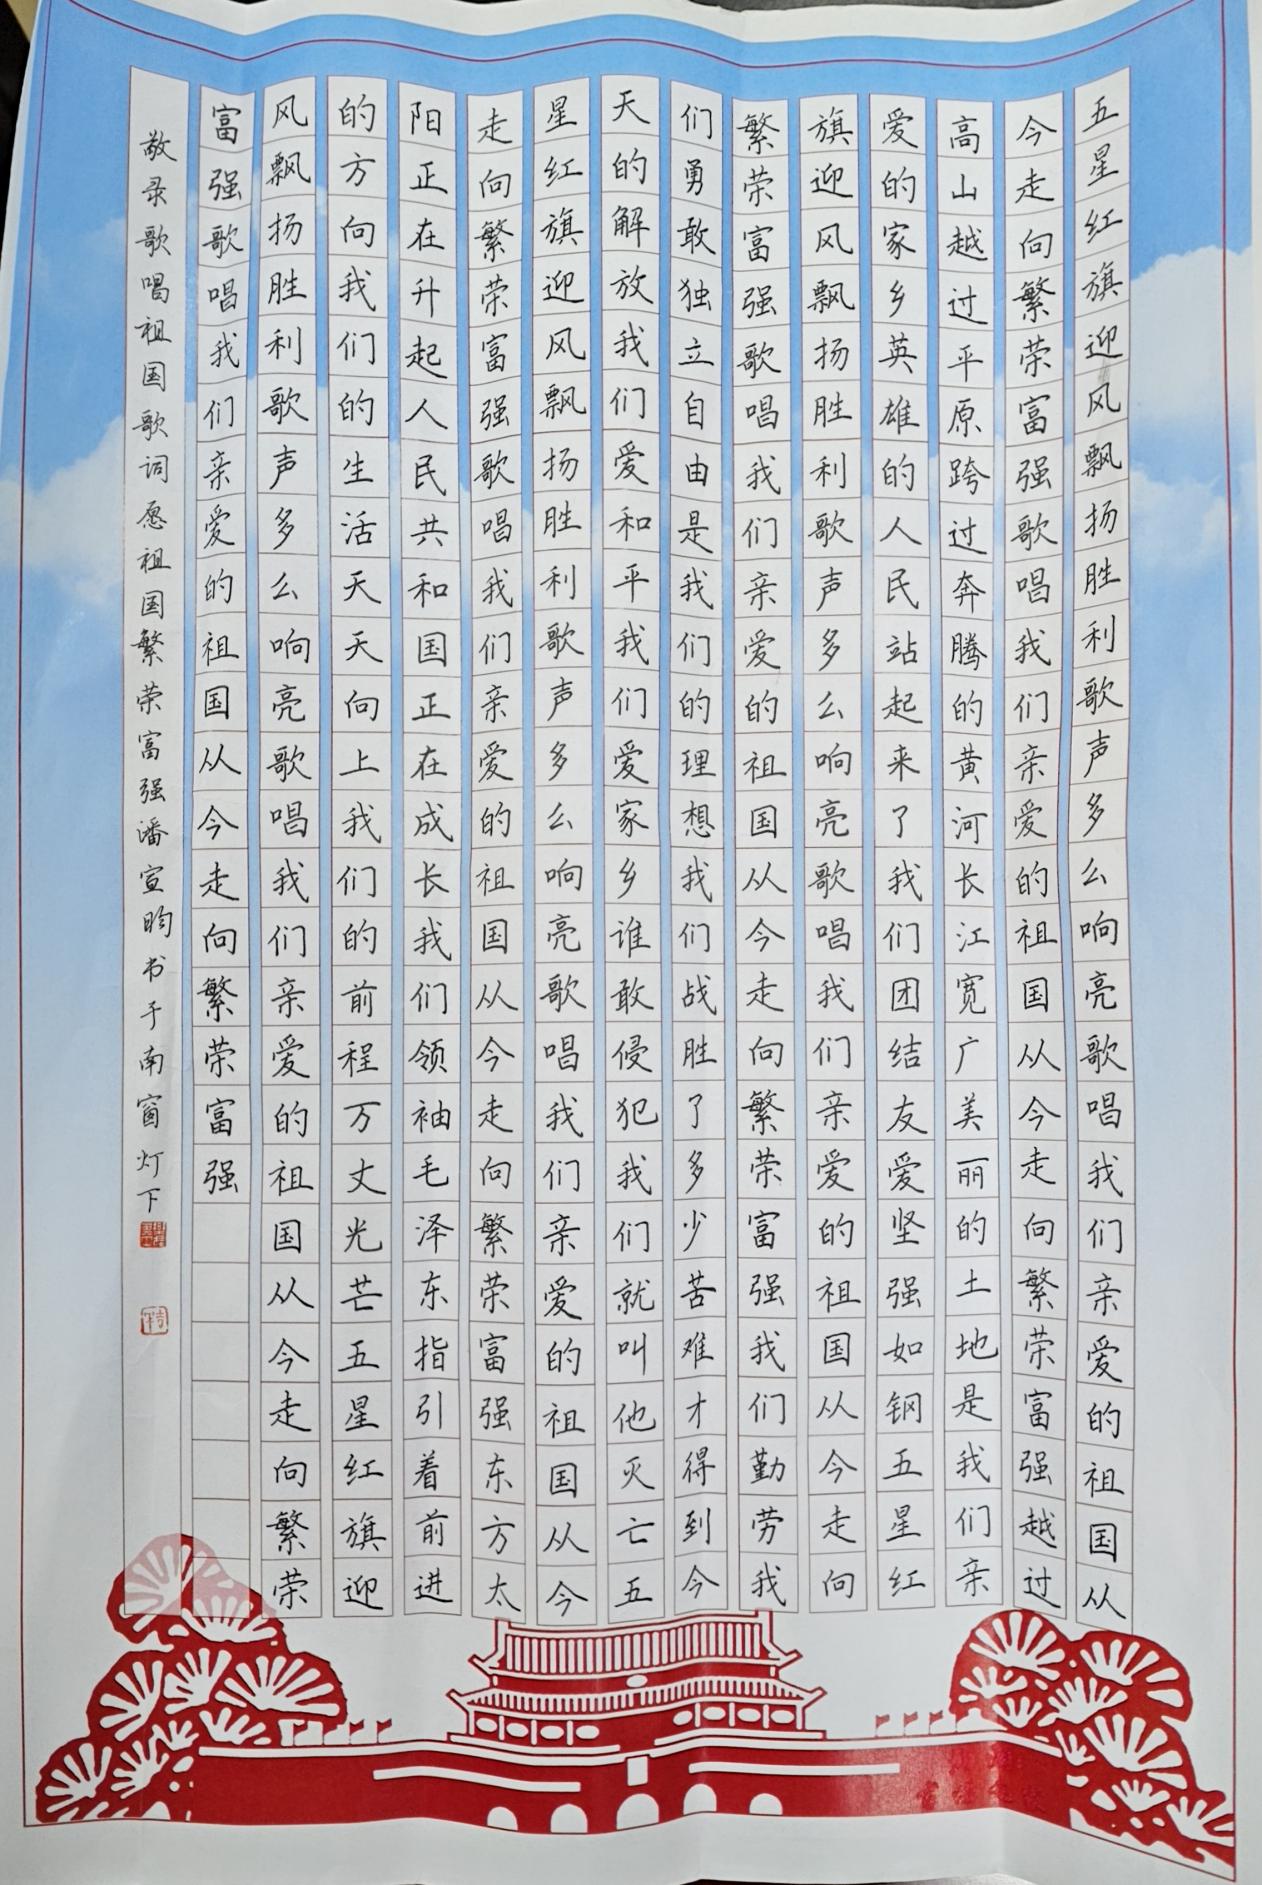 五星红旗迎风飘扬胜利歌声多么响亮歌唱我们亲爱的祖国从
今走向繁荣富强歌唱我们亲爱的祖国从今走向繁荣富强越过
高山越过平原跨过奔腾的黄河长江宽广美丽的土地是我们亲
爱的家乡英雄的人民站起来了我们团结友爱坚强如钢五星红
旗迎风飘扬胜利歌声多么响亮歌唱我们亲爱的祖国从今走向
繁荣富强歌唱我们亲爱的祖国从今走向繁荣富强我们勤劳我
们勇敢独立自由是我们的理想我们战胜了多少苦难才得到今
天的解放我们爱和平我们爱家乡谁敢侵犯我们就叫他灭亡五
星红旗迎风飘扬胜利歌声多么响亮歌唱我们亲爱的祖国从今
走向繁荣富强歌唱我们亲爱的祖国从今走向繁荣富强东方太
阳正在升起人民共和国正在成长我们领袖毛泽东指引着前进
的方向我们的生活天天向上我们的前程万丈光芒五星红旗迎
风飘扬胜利歌声多么响亮歌唱我们亲爱的祖国从今走向繁荣
富强歌唱我们亲爱的祖国从今走向繁荣富强
敬录歌唱祖国歌词愿祖国繁荣富强潘宣昀书于南窗灯下